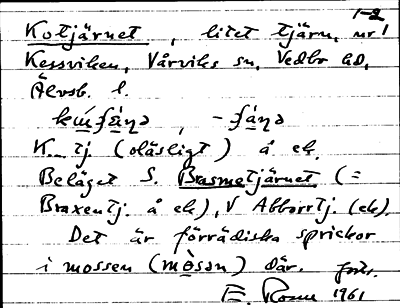 1-2
Kotjärnet, litet tjärn, nr 1
Kessviken, Vårviks sn, Vedbo hd,
Älvsb. l.
K. tj (oläsligt) å ek.
Beläget S. Brasmetjärnet (=
Braxentj. å ek), V Abborrtj. (ek).
Det är förrädiska sprickor
i mossen (mòsan) där. forts.
E. Rosen 1961